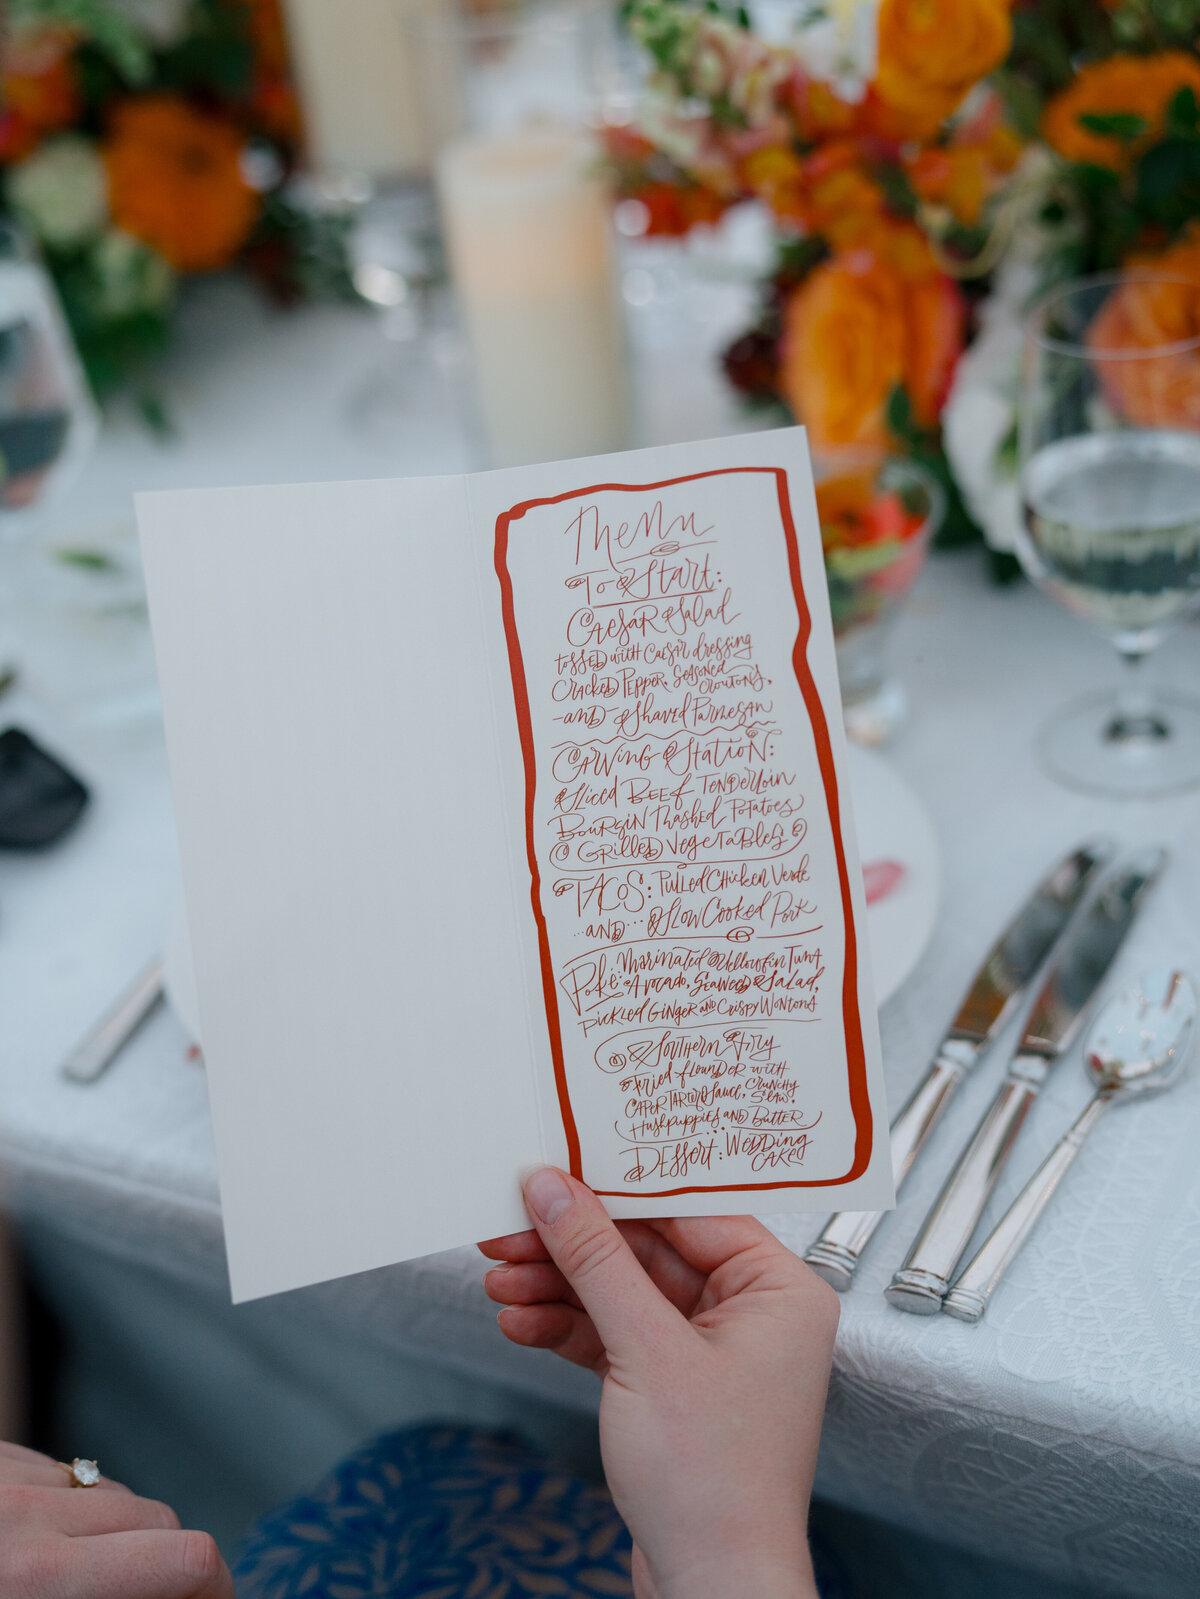 Menu
To Start:
Caesar Salad
tossed with Caesar dressing
Cracked Pepper, Seasoned
Croutons,
-and- Shaved Parmesan
Carving Station:
Sliced Beef Tenderloin
Boursin Mashed Potatoes
Grilled Vegetables
Tacos: Pulled Chicken Verde
...and... Slow Cooked Pork
Poké: Marinated Yellowfin Tuna
Avocado, Seaweed Salad,
Pickled Ginger and Crispy Wontons
Southern Fry
Fried flounder with
Caper Tarter Sauce, Crunchy
Slaw,
Hushpuppies and Butter
Dessert: Wedding
Cake